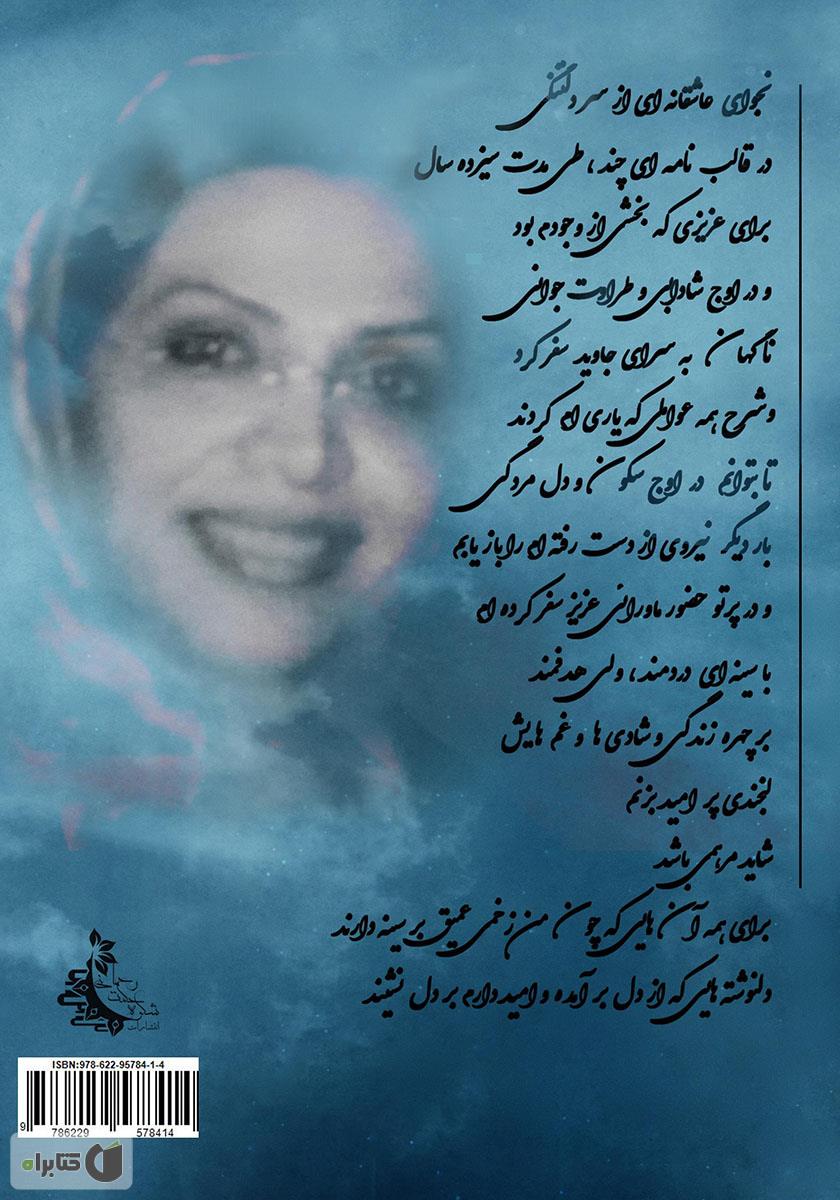 نجوای عاشقانه ای از سر دلتنگی
در قالب نامه ای چند ، طی مدت سیزده سال
برای عزیزی که بخشی از وجودم بود
و در اوج شادابی و طراوت جوانی
ناگهان به سرای جاوید سفر کرد
وشرح همه عواملی که یاری ام کردند
تا بتوانم در اوج سکون و دل مردگی
بار دیگر نیروی از دست رفته ام را باز یابم
و در پرتو حضور ماورائی عزیز سفر کرده ام
با سینه ای دردمند ، ولی هدفمند
بر چهره زندگی و شادی ها و غم هایش
لبخندی پر امید بزنم
شاید مرهمی باشد
برای همه آن هایی که چون من زخمی عمیق بر سینه دارند
دلنوشته هایی که از دل بر آمده و امیدوارم بر دل نشیند
انتشارات
ISBN:978-622-95784-1-4
9 786229 578414
کتابراه